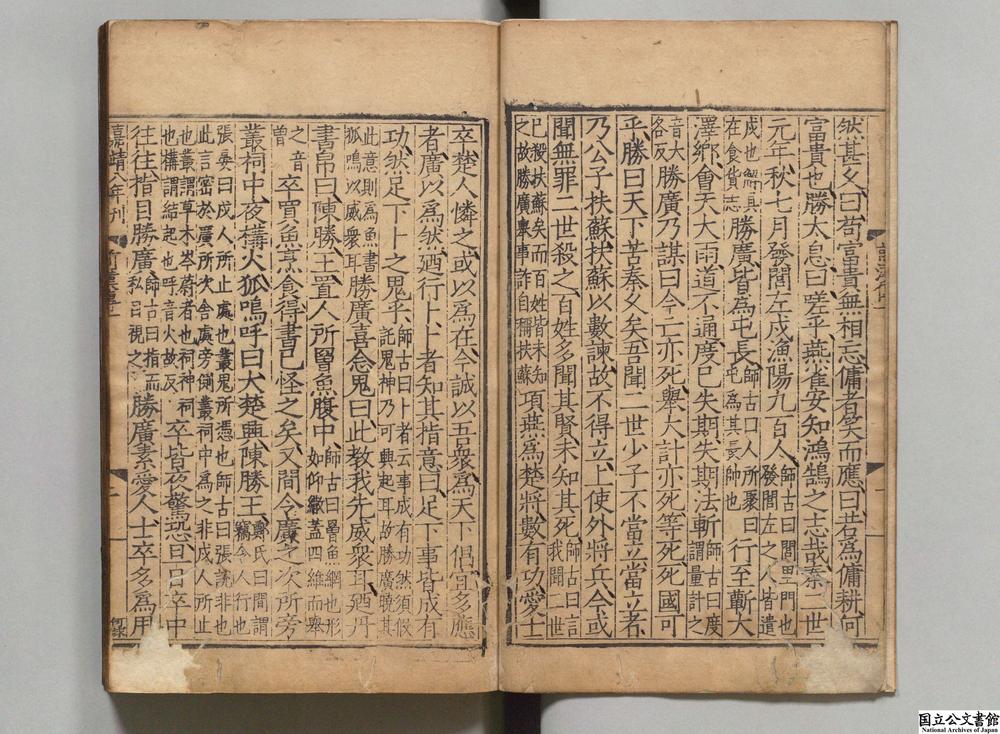 然甚久曰苟富貴無相忘傭者笑而應曰若為傭耕何
富貴也勝太息曰嗟乎燕雀安知鴻鵠之志哉秦二世
元年秋七月發閭左戍漁陽九百人師古曰閭里門也發閭左之人皆遣
戍也解具在食貨志勝廣皆為屯長師古曰人所聚曰屯為其長帥也行至蘄大
澤鄉會天大雨道不通度已失期失期法斬師古曰度謂量計之
音大各反勝廣乃謀曰今亡亦死舉大計亦死等死死國可
乎勝曰天下苦秦久矣吾聞二世少子不當立當立者
乃公子扶蘇扶蘇以數諫故不得立上使外將兵今或
聞無罪二世殺之百姓多聞其賢未知其死師古曰言我聞二世
已殺扶蘇矣而百姓皆未知之故勝廣舉事詐自稱扶蘇項燕為楚將數有功愛士
卒楚人憐之或以為在今誠以吾衆為天下倡宜多應
者廣以為然迺行卜卜者知其指意曰足下事皆成有
功然足下卜之鬼乎師古曰卜者云事成有功然須假託鬼神乃可興起耳故勝廣曉其
此意則為魚書狐鳴以威衆耳勝廣喜念鬼曰此教我先威衆耳迺丹
書帛曰陳勝王置人所罾魚腹中師古曰罾魚網也形如仰繖蓋四維而舉
之音曾卒買魚烹食得書已怪之矣又間令廣之次所旁
叢祠中夜構火狐鳴呼曰大楚興陳勝王鄭氏曰間謂竊令人行也
張晏曰戍人所止處也叢鬼所憑也師古曰張說非也此言密於廣所次舍處旁側叢祠中為之非戍人所止
也叢謂草木岑蔚者也祠神祠也構謂結起也呼音火故反卒皆夜驚恐旦日卒中
往往指目勝廣師古曰指而私目視之勝廣素愛人士卒多為用
嘉靖八年刊
国立公文書館
National Archives of Japan